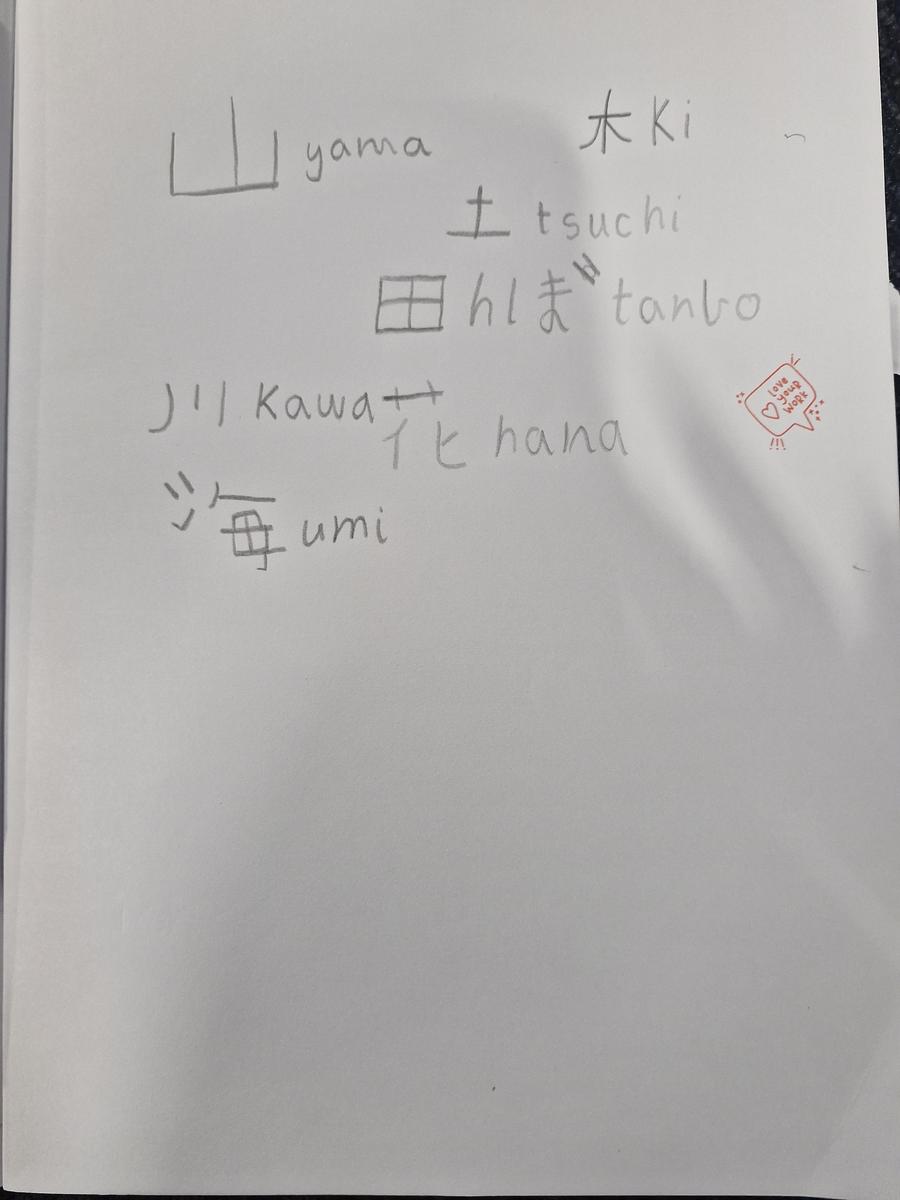 山 yama 木 Ki
土 tsuchi
田んぼ tanbo
川 Kawa
花 hana
海 umi
love
your
work